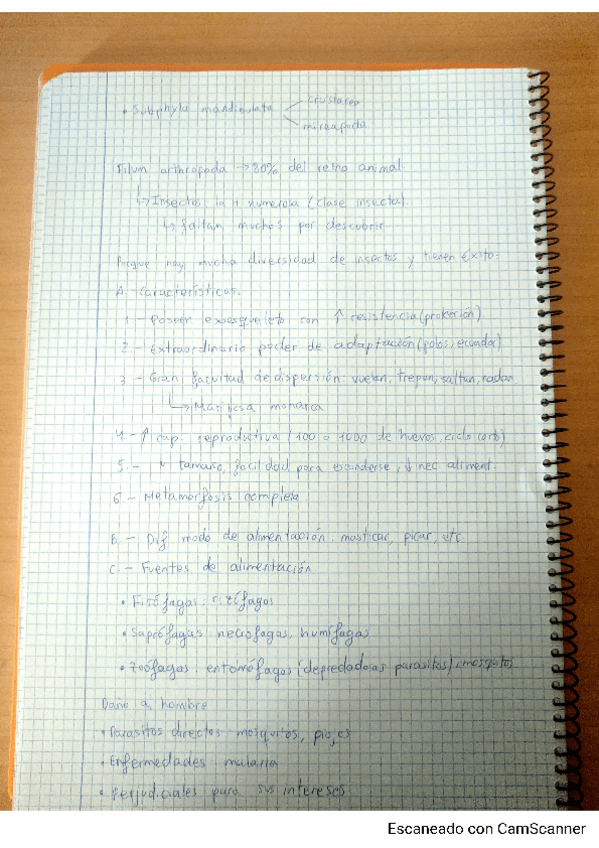 • Subphylu mandibulata < crustacea
miriapoda
Filum arthropoda → 80% del reino animal.
↳ Insectos la + numerosa (clase insecta).
↳ faltan muchos por descubrir
Porque hay mucha diversidad de insectos y tienen éxito:
A.- Características.
1.- Poseen exoesqueleto con ↑ resistencia (protección)
2.- Extraordinario poder de adaptación (polos, ecuador)
3.- Gran facultad de dispersión: vuelan, trepan, saltan, nadan
↳ Mariposa monarca
4.- ↑ cap. reproductiva (100 a 1000 de huevos, ciclo corto)
5.- ↓ tamaño, facilidad para esconderse, ↓ nec. aliment.
6.- Metamorfosis completa
B.- Dif modo de alimentación: masticar, picar, etc.
C.- Fuentes de alimentación
• Fitófagas: rizófagos
• Saprófagas: necrófagas, humífagas.
• Zoófagas: entomófagos (depredadoras parasitos), mosquitos
Daño al hombre
• Parasitos directos: mosquitos, piojos
• Enfermedades: malaria
• Perjudiciales para sus intereses
Escaneado con CamScanner